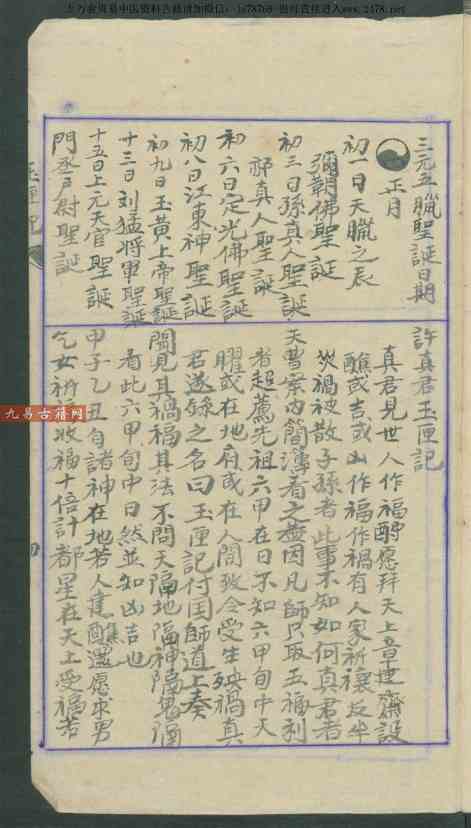 三元五臘聖誕日期
正月
初一日天臘之辰
彌勒佛聖誕
初三日孫真人聖誕
郝真人聖誕
初六日定光佛聖誕
初八日江東神聖誕
初九日玉黃上帝聖誕
十三日刘猛将軍聖誕
十五日上元天官聖誕
門丞戶尉聖誕
許真君玉匣記
真君見世人作福酧愿拜天上章進齋設
醮或吉或凶作福作禍有人家祈禳反生
災禍被散子孫者此事不知如何真君者
天曹案內簡簿看之盖因凡師只取五福利
者超薦先祖六甲在日不知六甲旬中天
曜或在地府或在人間致令受生殃禍真
君遂錄之名曰玉匣記付囯師道上奏
閱見其禍福其法不問天隔地隔神隔鬼隔
看此六甲旬中日然並知凶吉也
甲子乙丑旬諸神在地若人建醮還愿求男
乞女祈 收福十倍計都星在天上受福若
玉匣記
九易古籍网